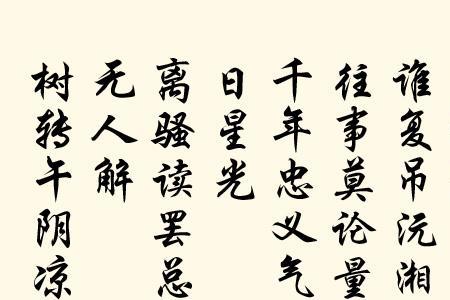 谁复吊沅湘
往事莫论量
千年忠义气
日星光
离骚读罢总
无人解
树转午阴凉